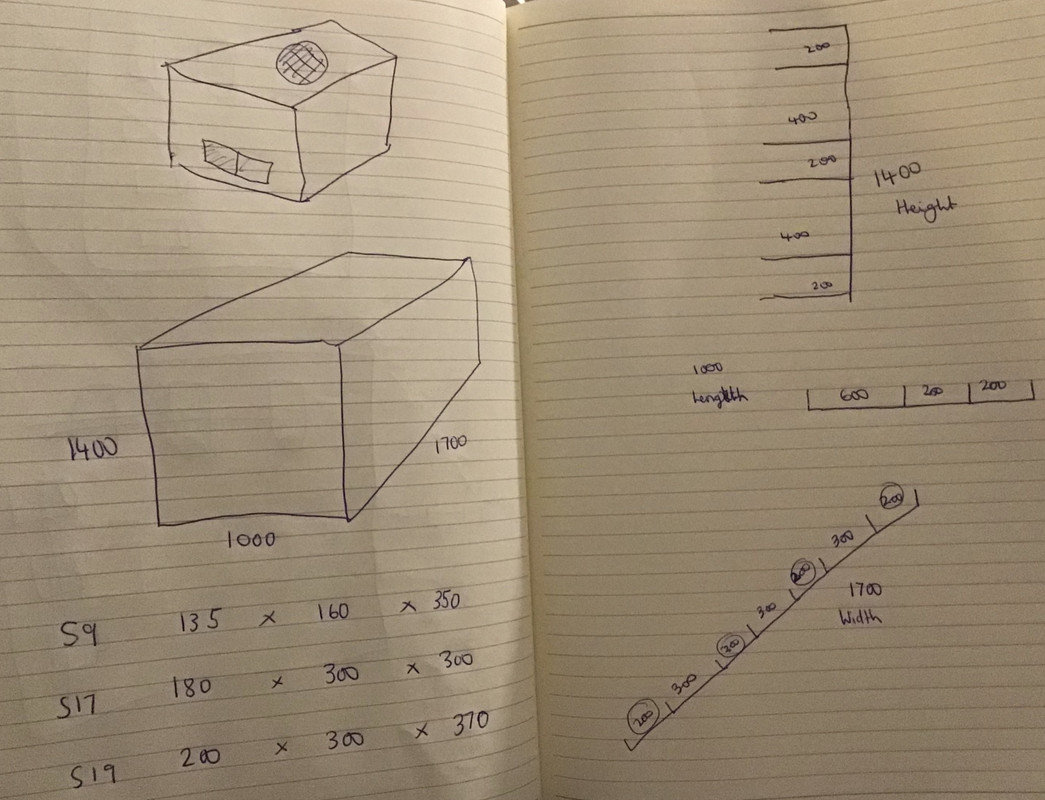 1400
1700
1000
S9 135 × 160 × 350
S17 180 × 300 × 300
S19 200 × 300 × 370
200
400
200
1400
Height
400
200
1000
Length
600 200 200
200
300
200
300
1700
Width
200
300
200